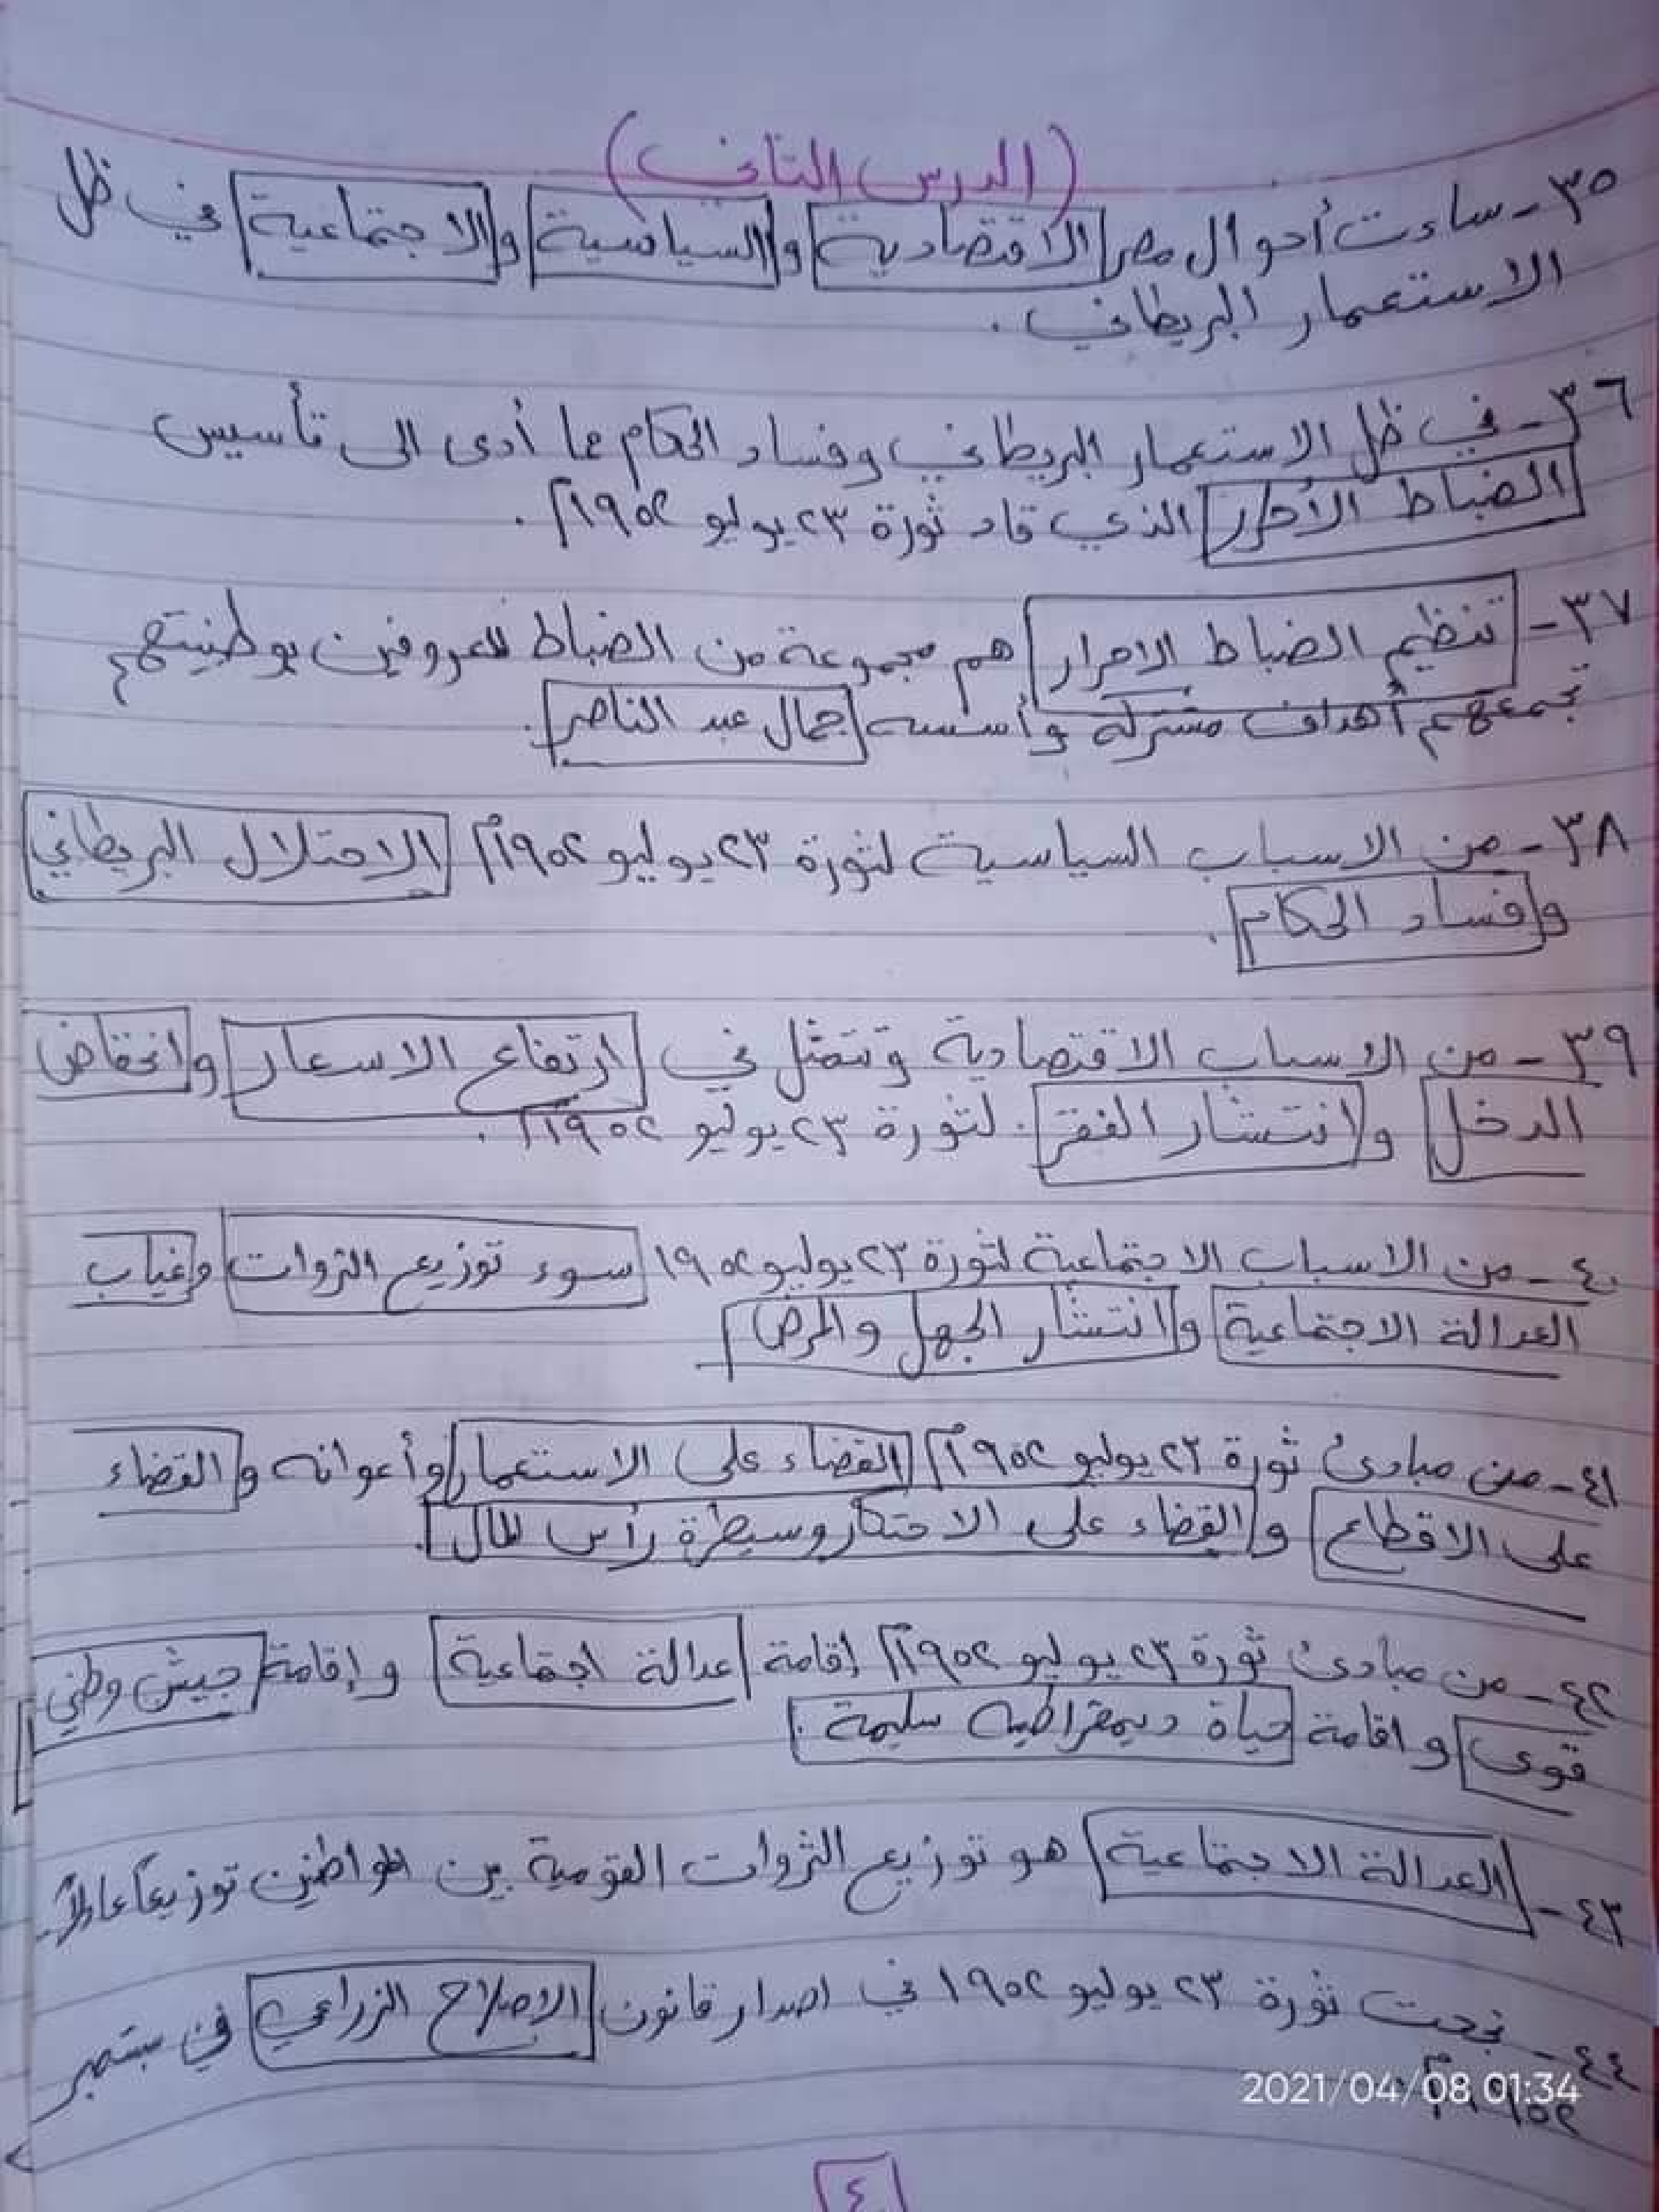 (الدرس الثاني)
٣٥- ساءت أحوال مصر الاقتصادية والسياسية والاجتماعية في ظل
الاستعمار البريطاني.
٣٦- في ظل الاستعمار البريطاني وفساد الحكام مما أدى الى تأسيس
الضباط الأحرار الذي قاد ثورة ٢٣ يوليو ١٩٥٢م.
٣٧- تنظيم الضباط الاحرار هم مجموعة من الضباط المعروفين بوطنيتهم
تجمعهم أهداف مشتركة وأسسه جمال عبد الناصر.
٣٨- من الاسباب السياسية لثورة ٢٣ يوليو ١٩٥٢م الاحتلال البريطاني
وفساد الحكام.
٣٩- من الاسباب الاقتصادية وتتمثل في ارتفاع الاسعار وانخفاض
الدخل وانتشار الفقر. لثورة ٢٣ يوليو ١٩٥٢م.
٤٠- من الاسباب الاجتماعية لثورة ٢٣ يوليو ١٩٥٢ سوء توزيع الثروات وغياب
العدالة الاجتماعية وانتشار الجهل والمرض
٤١- من مبادئ ثورة ٢٣ يوليو ١٩٥٢م القضاء على الاستعمار وأعوانه والقضاء
على الاقطاع والقضاء على الاحتكار وسيطرة رأس المال.
٤٢- من مبادئ ثورة ٢٣ يوليو ١٩٥٢م إقامة عدالة اجتماعية وإقامة جيش وطني
قوى واقامة حياة ديمقراطيه سليمة.
٤٣- العدالة الاجتماعية هو توزيع الثروات القومية بين المواطنين توزيعاً عادلاً.
٤٤- نجحت ثورة ٢٣ يوليو ١٩٥٢ في اصدار قانون الاصلاح الزراعي في سبتمبر
١٩٥٢م
2021/04/08 01:34
٤